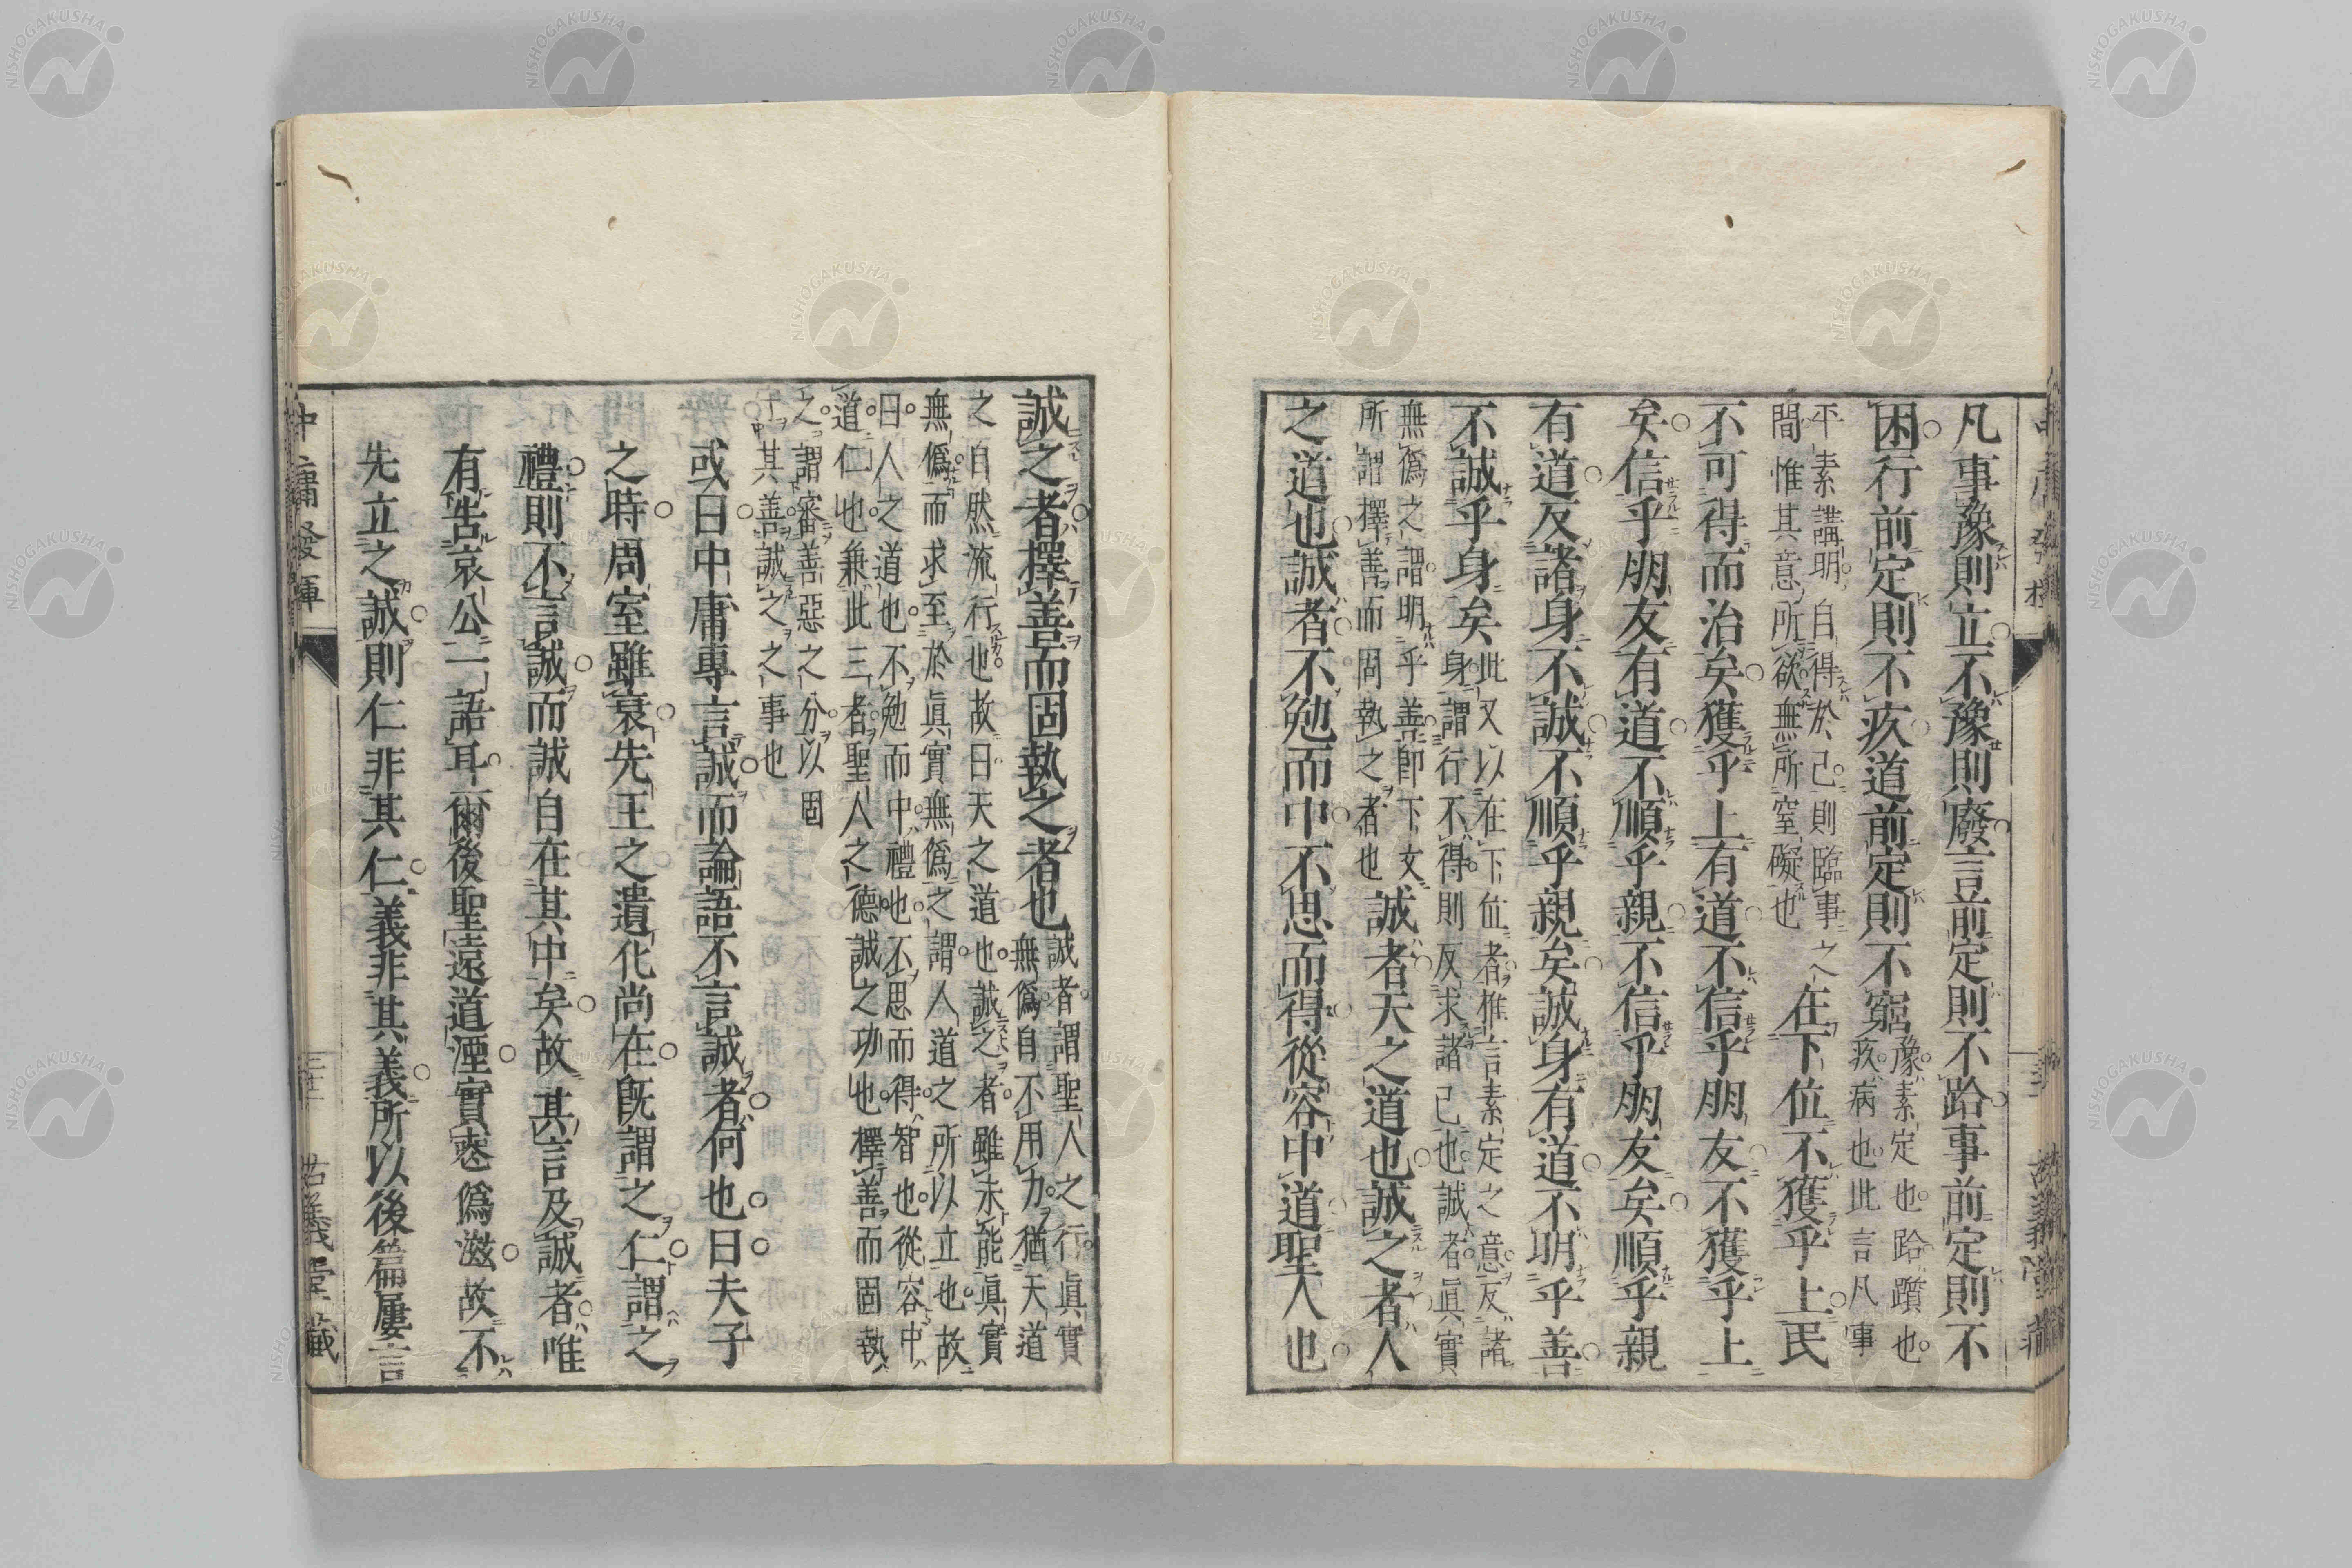 凡事豫則立不豫則廢言前定則不跲事前定則不
困行前定則不疚道前定則不窮
豫素定也跲躓也
疚病也此言凡事
平素講明自得於己則臨事之
間惟其意所欲無所窒礙也
在下位不獲乎上民
不可得而治矣獲乎上有道不信乎朋友不獲乎上
矣信乎朋友有道不順乎親不信乎朋友矣順乎親
有道反諸身不誠不順乎親矣誠身有道不明乎善
不誠乎身矣
此又以在下位者推言素定之意反諸
身謂行不得則反求諸己也誠者眞實
無僞之謂明乎善卽下文
所謂擇善而固執之者也
誠者天之道也誠之者人
之道也誠者不勉而中不思而得從容中道聖人也
誠之者擇善而固執之者也
誠者謂聖人之行眞實
無僞自不用力猶天道
之自然流行也故曰天之道也誠之者雖未能眞實
無僞而求至於眞實無僞之謂人道之所以立也故
曰人之道也不勉而中禮也不思而得智也從容中
道仁也兼此三者聖人之德誠之功也擇善而固執
之謂審善惡之分以固
守其善誠之之事也
或曰中庸專言誠而論語不言誠者何也曰夫子
之時周室雖衰先王之遺化尚在旣謂之仁謂之
禮則不言誠而誠自在其中矣故其言及誠者唯
有告哀公一語耳爾後聖遠道湮實悫僞滋故不
先立之誠則仁非其仁義非其義所以後篇屢言
中庸發揮
古義堂藏